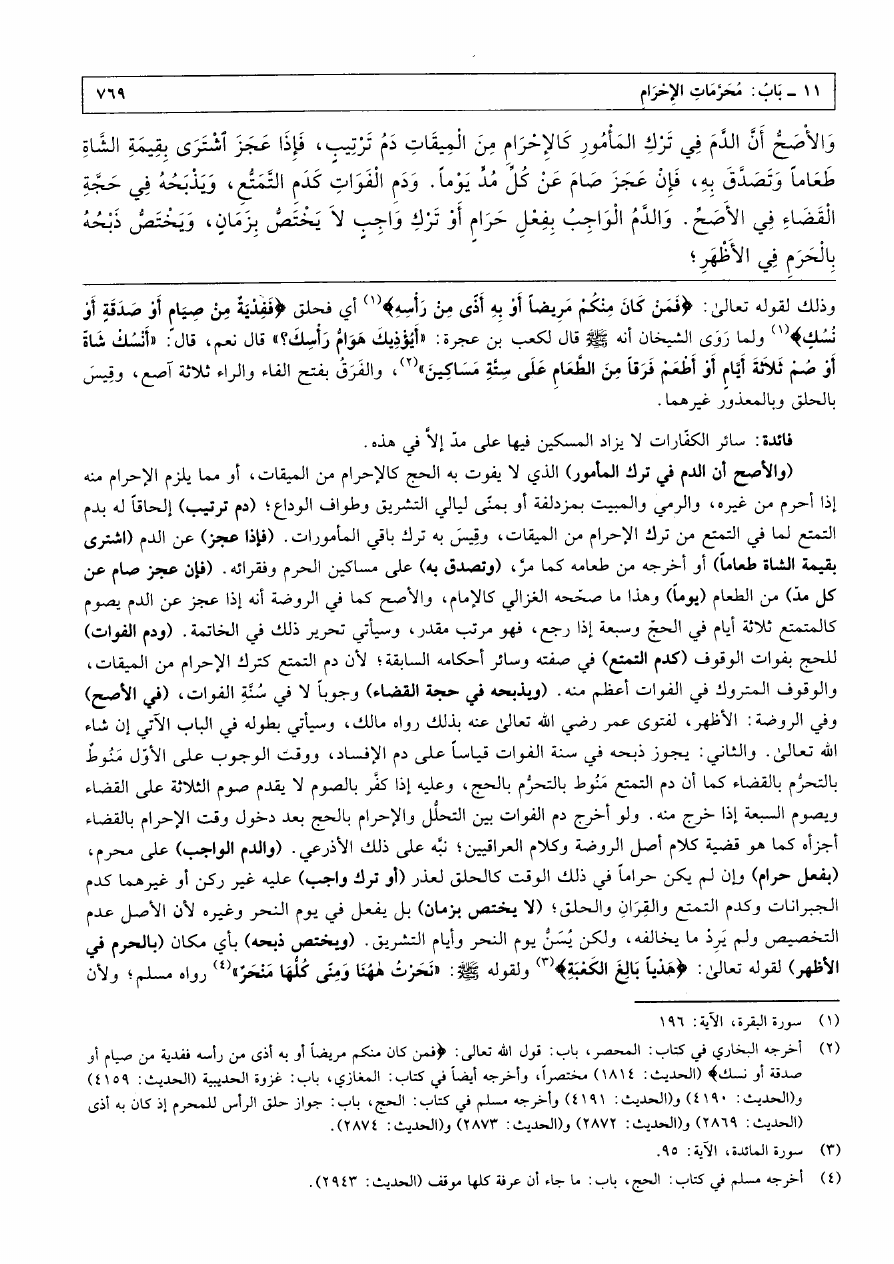 ١١ - بَابُ: مُحَرَّمَاتِ الإِحْرَامِ ٧٦٩
وَالأَصَحُّ أَنَّ الدَّمَ فِي تَرْكِ المَأْمُورِ كَالإِحْرَامِ مِنَ الْمِيقَاتِ دَمُ تَرْتِيبٍ، فَإِذَا عَجَزَ ٱشْتَرَى بِقِيمَةِ الشَّاةِ
طَعَاماً وَتَصَدَّقَ بِهِ، فَإِنْ عَجَزَ صَامَ عَنْ كُلِّ مُدٍّ يَوْماً. وَدَم الْفَوَاتِ كَدَمِ التَّمَتُّعِ، وَيَذْبَحُهُ فِي حَجَّةِ
الْقَضَاءِ فِي الأَصَحِّ. وَالدَّمُ الْوَاجِبُ بِفِعْلِ حَرَامٍ أَوْ تَرْكِ وَاجِبٍ لاَ يَخْتَصُّ بِزَمَانٍ، وَيَخْتَصُّ ذَبْحُهُ
بِالْحَرَمِ فِي الأَظْهَرِ؛
وذلك لقوله تعالىٰ: ﴿فَمَنْ كَانَ مِنْكُمْ مَرِيضاً أَوْ بِهِ أَذًى مِنْ رَأْسِهِ﴾(١) أي فحلق ﴿فَفِدْيَةٌ مِنْ صِيَامٍ أَوْ صَدَقَةٍ أَوْ
نُسُكٍ﴾(١) ولما رَوَى الشيخان أنه ﷺ قال لكعب بن عجرة: «أَيُؤْذِيكَ هَوَامُّ رَأْسِكَ؟» قال نعم، قال: «أُنْسُكْ شَاةً
أَوْ صُمْ ثَلاَثَةَ أَيَّامٍ أَوْ أَطْعِمْ فَرَقاً مِنَ الطَّعَامِ عَلَى سِتَّةِ مَسَاكِينَ»(٢)، والفَرَقُ بفتح الفاء والراء ثلاثة آصع، وقِيسَ
بالحلق وبالمعذور غيرهما.
فائدة: سائر الكفّارات لا يزاد المسكين فيها على مدّ إلاَّ في هذه.
(والأصح أن الدم في ترك المأمور) الذي لا يفوت به الحج كالإحرام من الميقات، أو مما يلزم الإحرام منه
إذا أحرم من غيره، والرمي والمبيت بمزدلفة أو بمنًى ليالي التشريق وطواف الوداع؛ (دم ترتيب) إلحاقاً له بدم
التمتع لما في التمتع من ترك الإحرام من الميقات، وقِيسَ به ترك باقي المأمورات. (فإذا عجز) عن الدم (اشترى
بقيمة الشاة طعاماً) أو أخرجه من طعامه كما مرّ، (وتصدق به) على مساكين الحرم وفقرائه. (فإن عجز صام عن
كل مدّ) من الطعام (يوماً) وهذا ما صحّحه الغزالي كالإمام، والأصح كما في الروضة أنه إذا عجز عن الدم يصوم
كالمتمتع ثلاثة أيام في الحجّ وسبعة إذا رجع، فهو مرتب مقدر، وسيأتي تحرير ذلك في الخاتمة. (ودم الفوات)
للحج بفوات الوقوف (كدم التمتع) في صفته وسائر أحكامه السابقة؛ لأن دم التمتع كترك الإحرام من الميقات،
والوقوف المتروك في الفوات أعظم منه. (ويذبحه في حجة القضاء) وجوباً لا في سُنَّةِ الفوات، (في الأصح)
وفي الروضة: الأظهر، لفتوى عمر رضي الله تعالىٰ عنه بذلك رواه مالك، وسيأتي بطوله في الباب الآتي إن شاء
الله تعالىٰ. والثاني: يجوز ذبحه في سنة الفوات قياساً على دم الإفساد، ووقت الوجوب على الأوّل مَنُوطٌ
بالتحرُّم بالقضاء كما أن دم التمتع مَنُوط بالتحرُّم بالحج، وعليه إذا كفَّر بالصوم لا يقدم صوم الثلاثة على القضاء
ويصوم السبعة إذا خرج منه. ولو أخرج دم الفوات بين التحلُّل والإحرام بالحج بعد دخول وقت الإحرام بالقضاء
أجزأه كما هو قضية كلام أصل الروضة وكلام العراقيين؛ نبَّه على ذلك الأذرعي. (والدم الواجب) على محرم،
(بفعل حرام) وإن لم يكن حراماً في ذلك الوقت كالحلق لعذر (أو ترك واجب) عليه غير ركن أو غيرهما كدم
الجبرانات وكدم التمتع والقِرَانِ والحلق؛ (لا يختص بزمان) بل يفعل في يوم النحر وغيره لأن الأصل عدم
التخصيص ولم يَرِدْ ما يخالفه، ولكن يُسَنُّ يوم النحر وأيام التشريق. (ويختص ذبحه) بأي مكان (بالحرم في
الأظهر) لقوله تعالىٰ: ﴿هَدْياً بَالِغَ الكَعْبَةِ﴾(٣) ولقوله ﷺ: «نَحَرْتُ هٰهُنَا وَمِنًى كُلُّهَا مَنْحَرٌ»(٤) رواه مسلم؛ ولأن
(١) سورة البقرة، الآية: ١٩٦
(٢) أخرجه البخاري في كتاب: المحصر، باب: قول الله تعالى: ﴿فمن كان منكم مريضاً أو به أذى من رأسه ففدية من صيام أو
صدقة أو نسك﴾ (الحديث: ١٨١٤) مختصراً، وأخرجه أيضاً في كتاب: المغازي، باب: غزوة الحديبية (الحديث: ٤١٥٩)
و(الحديث: ٤١٩٠) و(الحديث: ٤١٩١) وأخرجه مسلم في كتاب: الحج، باب: جواز حلق الرأس للمحرم إذ كان به أذى
(الحديث: ٢٨٦٩) و(الحديث: ٢٨٧٢) و(الحديث: ٢٨٧٣) و(الحديث: ٢٨٧٤).
(٣) سورة المائدة، الآية: ٩٥.
(٤) أخرجه مسلم في كتاب: الحج، باب: ما جاء أن عرفة كلها موقف (الحديث: ٢٩٤٣).